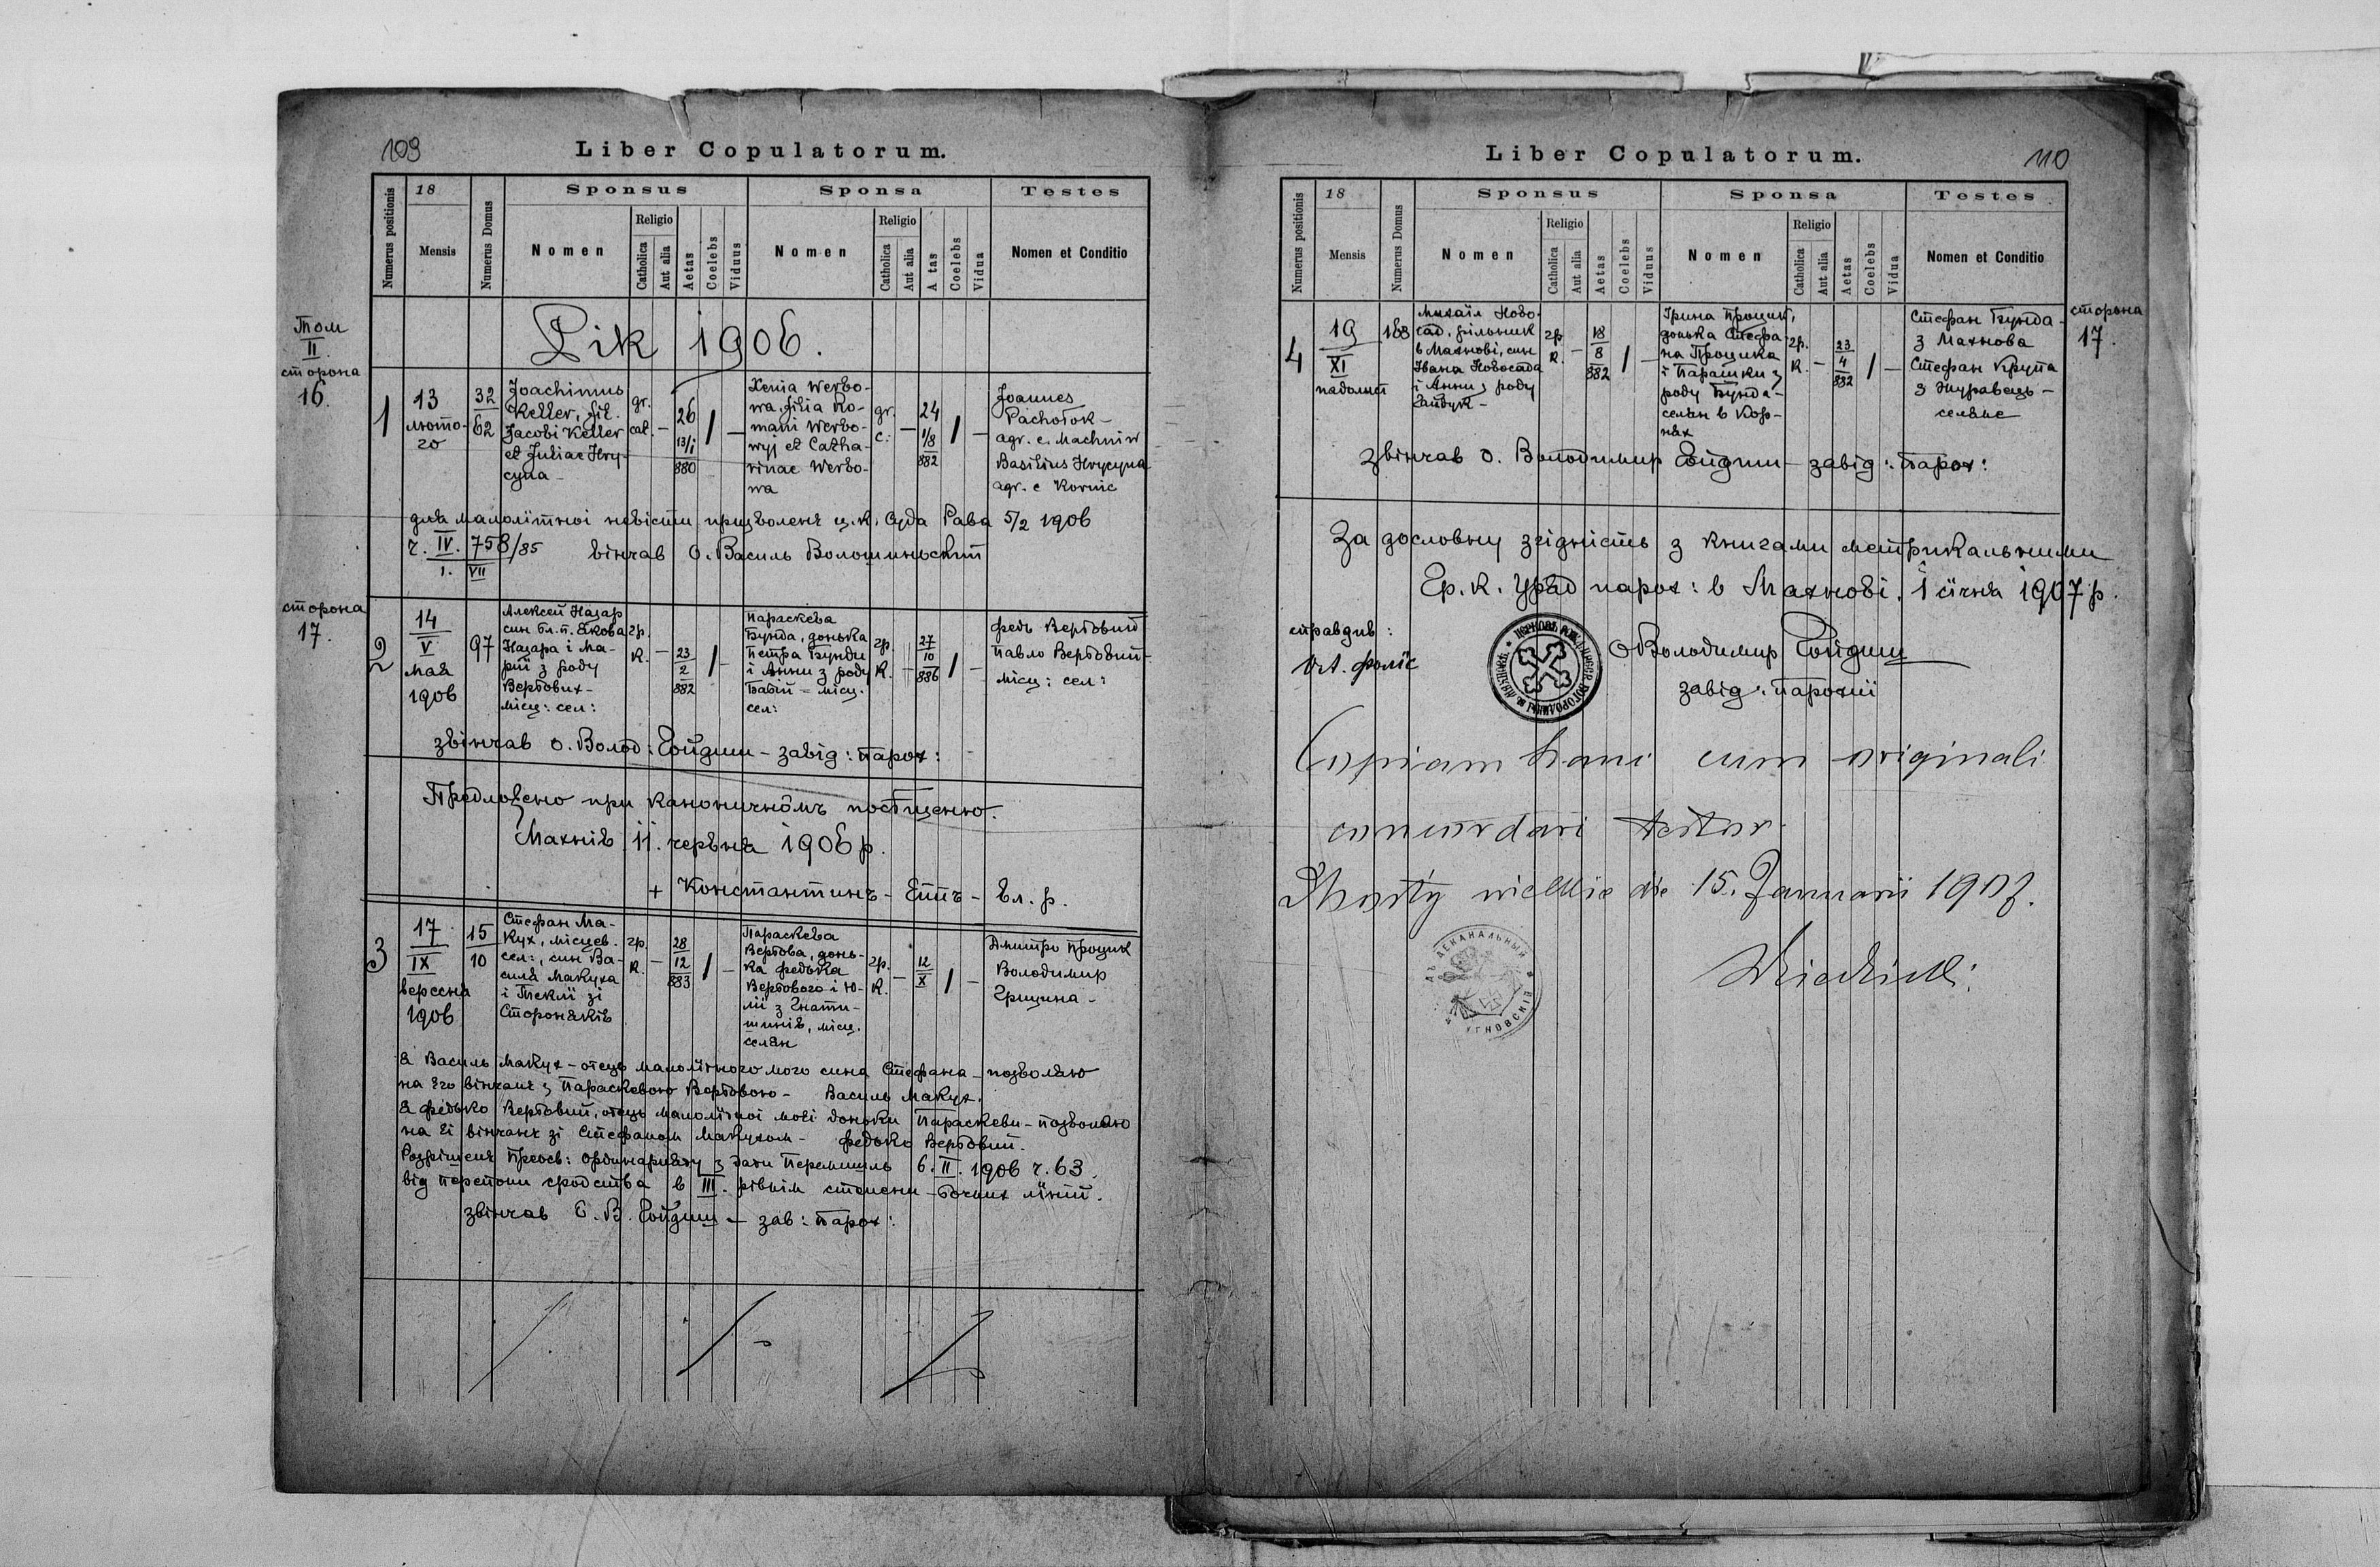 109
Liber Copulatorum.
Numerus positionis
18
Mensis
Numerus Domus
Sponsus
Nomen
Religio
Catholica
Aut alia
Aetas
Coelebs
Viduus
Sponsa
Nomen
Religio
Catholica
Aut alia
A tas
Coelebs
Vidua
Testes
Nomen et Conditio
Рік 1906.
Том
II
сторона
16.
1
13
люто-
го
32
62
Joachimus
Keller, fil.
Jacobi Keller
et Juliae Hry-
cyna
gr.
cat.
—
26
13/1
880
/
—
Xenia Werbo-
wa, filia Ro-
mani Werbo-
wyj et Catha-
rinae Werbo-
wa
gr.
c.
—
24
1/8
882
/
—
Joannes
Pachołok -
agr. e. Machniw
Basilius Hrycyna
agr. e Kornic
для малолїтної невісти призволенє ц. к. Суда Рава 5/2 1906
ч. IV. 758/85 вінчав о. Василь Волошиньский
1. VII
сторона
17.
2
14
V
мая
1906
97
Алексей Назар
син бл. п. Якова
Назара і Ма-
риї з роду
Вербових -
місц: сел:
гр.
к.
—
23
2
882
/
—
Параскева
Бунда, донька
Петра Бунди
і Анни з роду
Бабій - місц.
сел:
гр.
к.
—
27
10
886
/
—
Федь Вербовий
Павло Вербовий -
місц: сел:
звінчав о. Волод: Гойдиш - завід: парох:
Предложено при каноничнôмъ посѣщеню.
Махнів 11. червня 1906 р.
+ Константинъ - Епп҃ъ - вл. р.
3
17
IX
вересня
1906
15
10
Стефан Ма-
кух, місцев.
сел:, син Ва-
силя Макуха
і Теклї зі
Стороняків
гр.
к.
—
28
12
883
/
—
Параскева
Вербова, донь-
ка Федька
Вербового і Ю-
лїї з Гнати-
шинів, місц.
селян
гр.
к.
—
12
X
/
—
Дмитро Процик
Володимир
Грицина -
Я Василь Макух - отець малолїтного мого сина Стефана - позволяю
на Єго вінчанє з Параскевою Вербовою - Василь Макух.
Я Федько Вербовий, отець малолїтної моєї доньки Параскеви - позволяю
на Єї вінчанє зі Стефаном Макухом - Федько Вербовий.
Розрішенє Преосв: Ординарияту з дати Перемишль 6. II. 1906 ч. 63.
від перепони сродства в III. рівнім степени - бочних лїнїй.
звінчав о. В. Гойдиш - зав: парох:
110
Liber Copulatorum.
Numerus positionis
18
Mensis
Numerus Domus
Sponsus
Nomen
Religio
Catholica
Aut alia
Aetas
Coelebs
Viduus
Sponsa
Nomen
Religio
Catholica
Aut alia
Aetas
Coelebs
Vidua
Testes
Nomen et Conditio
4
19
XI
падолист
168
Михаіл Ново-
сад, рільник
в Махнові, син
Івана Новосада
і Анни з роду
Гайдук -
гр.
к.
—
18
8
882
/
—
Ірина Процик,
донька Стефа-
на Процика
і Парашки з
роду Бунда -
селян в Кор-
нях
гр.
к.
—
23
4
882
/
—
Стефан Бунда -
з Махнова
Стефан Крупа
з Журавець -
селяне
сторона
17.
звінчав о. Володимир Гойдиш - завід: парох:
За дословну згідність з книгами метрикальними
Гр. к. Уряд парох: в Махнові. 1 сїчня 1907 р.
справдив:
о Володимир Гойдиш
завід: парохії
Copiam hanc cum originali
concordari testor.
die 15. Januarii 1907.